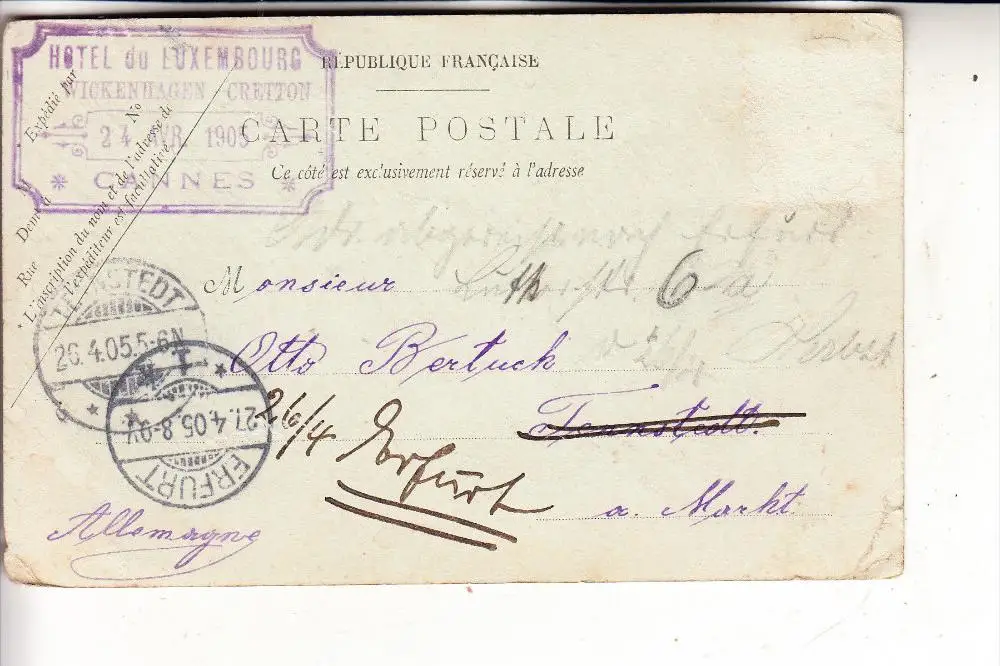 HOTEL du LUXEMBOURG
WICKENHAGEN CRETTON
24 AVR. 1905
CANNES
RÉPUBLIQUE FRANÇAISE
CARTE POSTALE
Ce côté est exclusivement réservé à l'adresse
Expédié par
M
No
Demt à
Rue
L'inscription du nom et de l'adresse de
l'expéditeur est facultative.
nach Erfurt
6
Monsieur
Otto Bertuch
Tennstedt.
26/4 Erfurt
a. Markt
Allemagne
TENNSTEDT
26.4.05.5-6N
ERFURT
27.4.05.8-9V